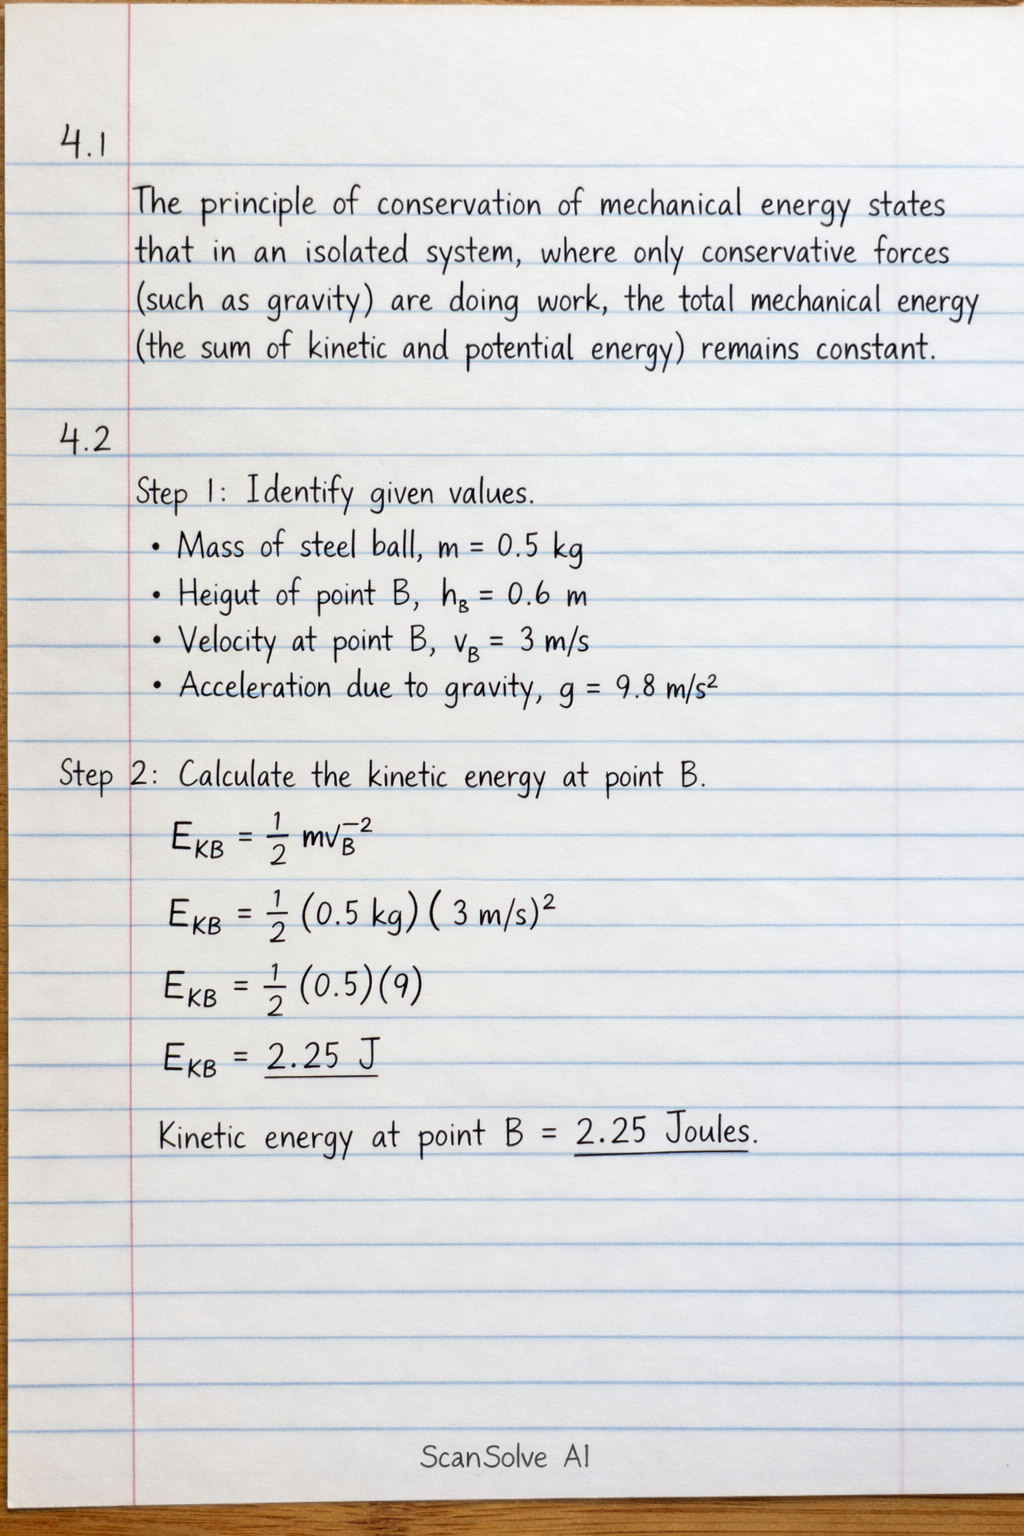 4.1
The principle of conservation of mechanical energy states
that in an isolated system, where only conservative forces
(such as gravity) are doing work, the total mechanical energy
(the sum of kinetic and potential energy) remains constant.
4.2
Step 1: Identify given values.
• Mass of steel ball, m = 0.5 kg
• Heigut of point B, h_B = 0.6 m
• Velocity at point B, v_B = 3 m/s
• Acceleration due to gravity, g = 9.8 m/s²
Step 2: Calculate the kinetic energy at point B.
E_KB = 1/2 mv_B^-2
E_KB = 1/2 (0.5 kg) ( 3 m/s)²
E_KB = 1/2 (0.5)(9)
E_KB = 2.25 J
Kinetic energy at point B = 2.25 Joules.
ScanSolve AI